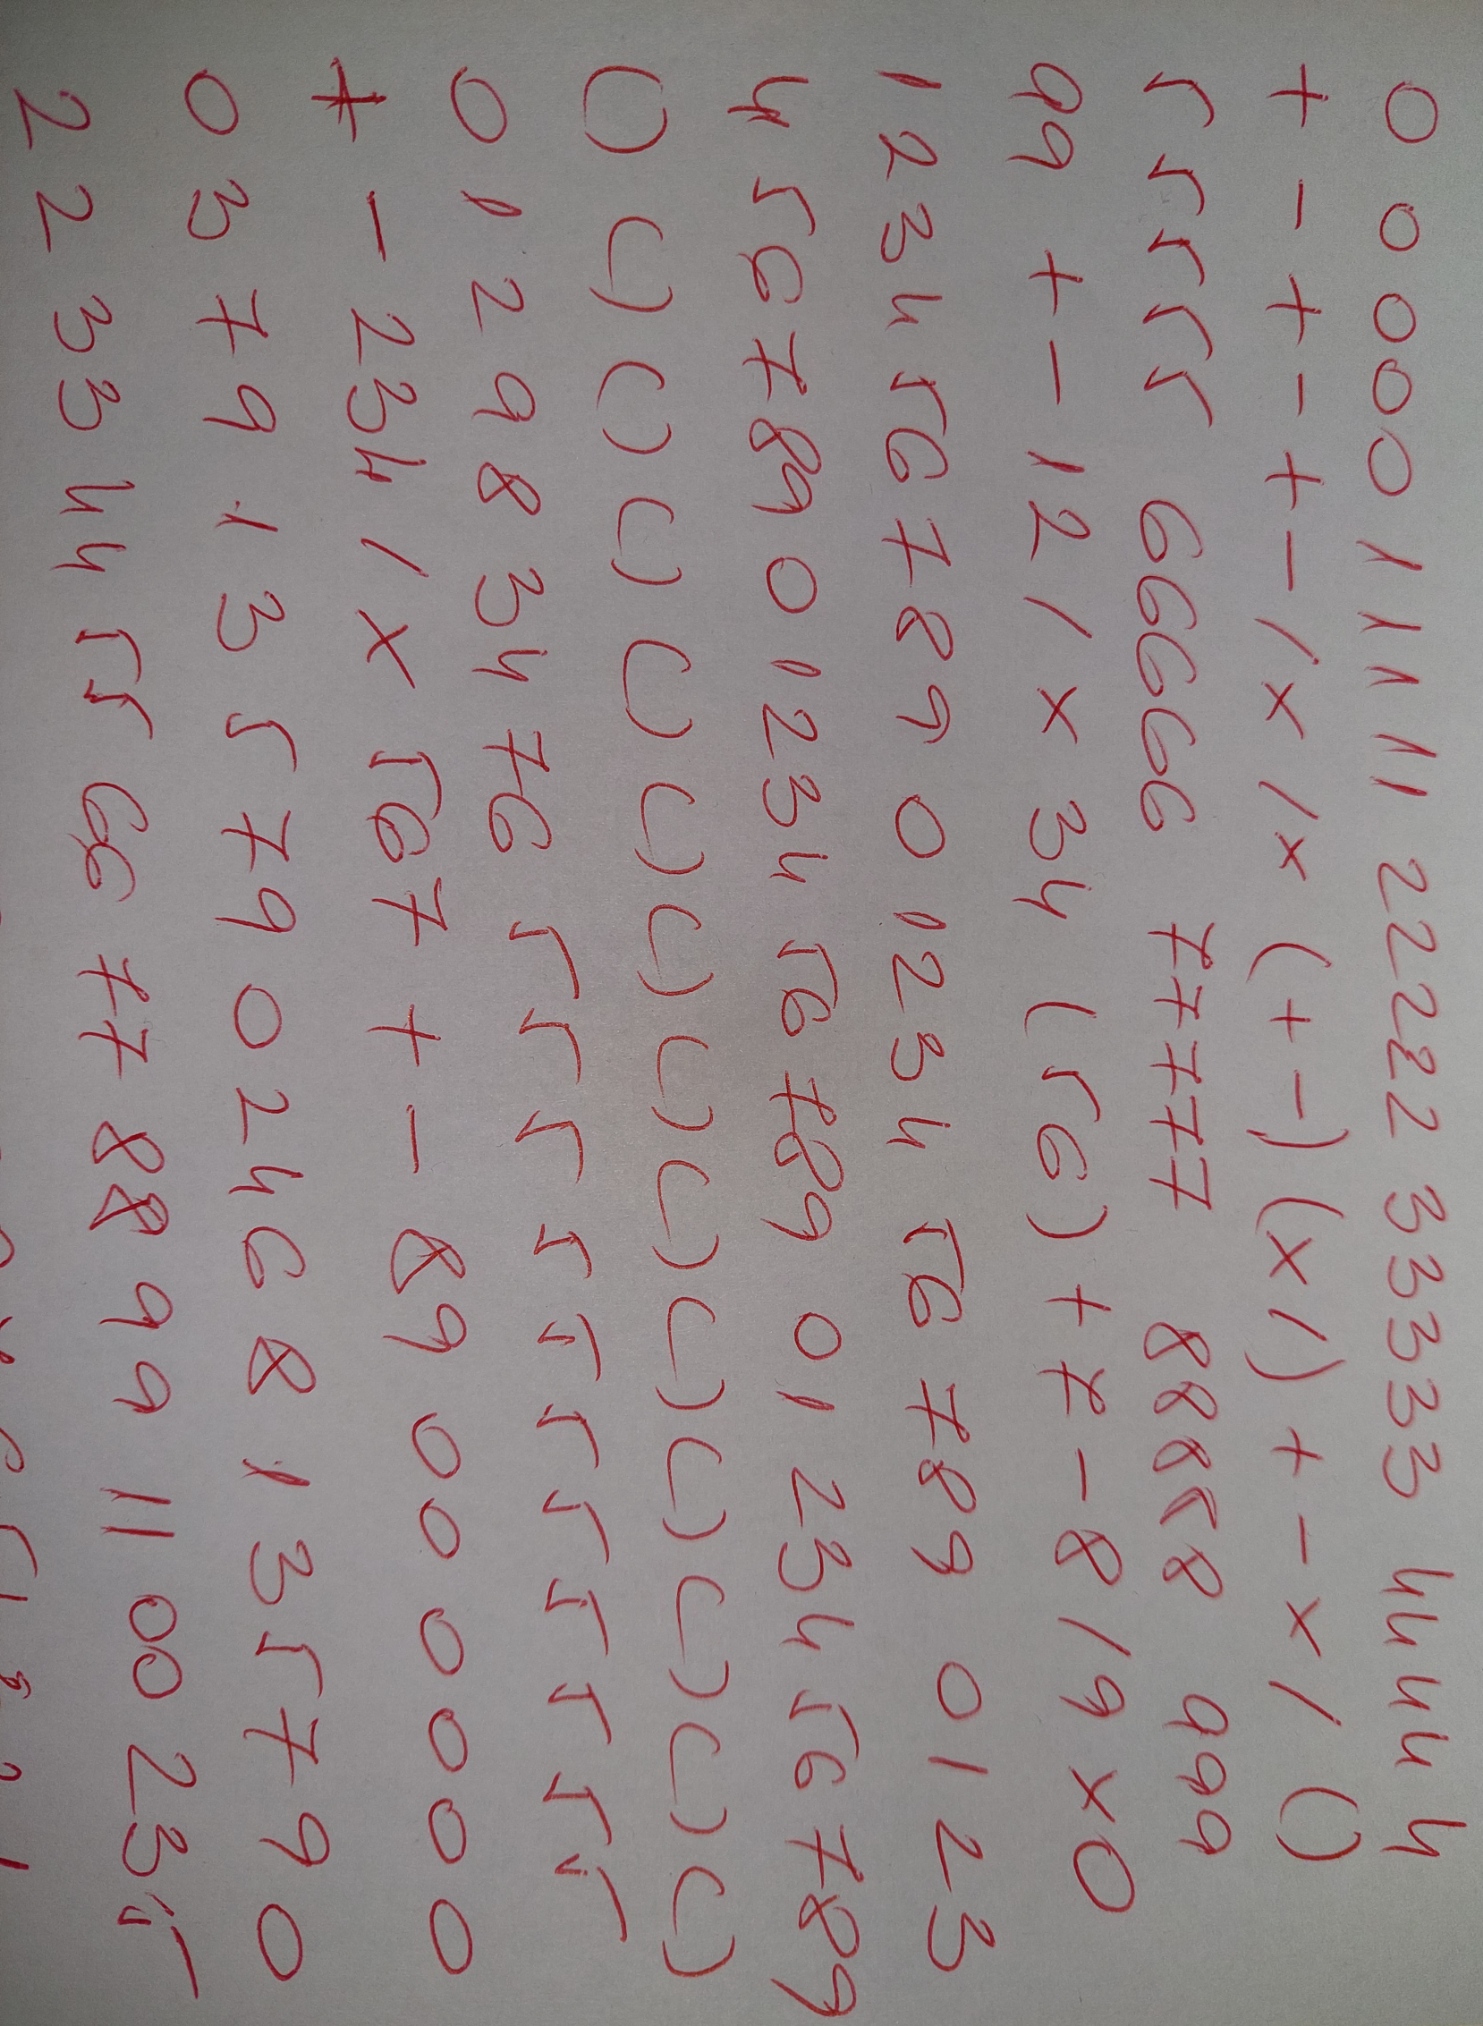 0 0 0 0 0 1 1 1 1 1 2 2 2 2 2 3 3 3 3 3 4 4 4 4 4
+ - + - + - / x / x ( + - ) ( x / ) + - x / ( )
5 5 5 5 5 6 6 6 6 6 7 7 7 7 7 8 8 8 8 8 9 9 9
99 + - 12 / x 34 (56) + 7 - 8 / 9 x 0
1 2 3 4 5 6 7 8 9 0 1 2 3 4 5 6 7 8 9 0 1 2 3
4 5 6 7 8 9 0 1 2 3 4 5 6 7 8 9 0 1 2 3 4 5 6 7 8 9
( ) ( ) ( ) ( ) ( ) ( ) ( ) ( ) ( ) ( ) ( ) ( ) ( ) ( )
0 1 2 9 8 3 4 7 6 5 5 5 5 5 5 5 5 5 5 5
+ - 234 / x 567 + - 89 0 0 0 0 0 0
0 3 7 9 1 3 5 7 9 0 2 4 6 8 1 3 5 7 9 0
2 2 3 3 4 4 5 5 6 6 7 7 8 8 9 9 1 1 0 0 2 3 5